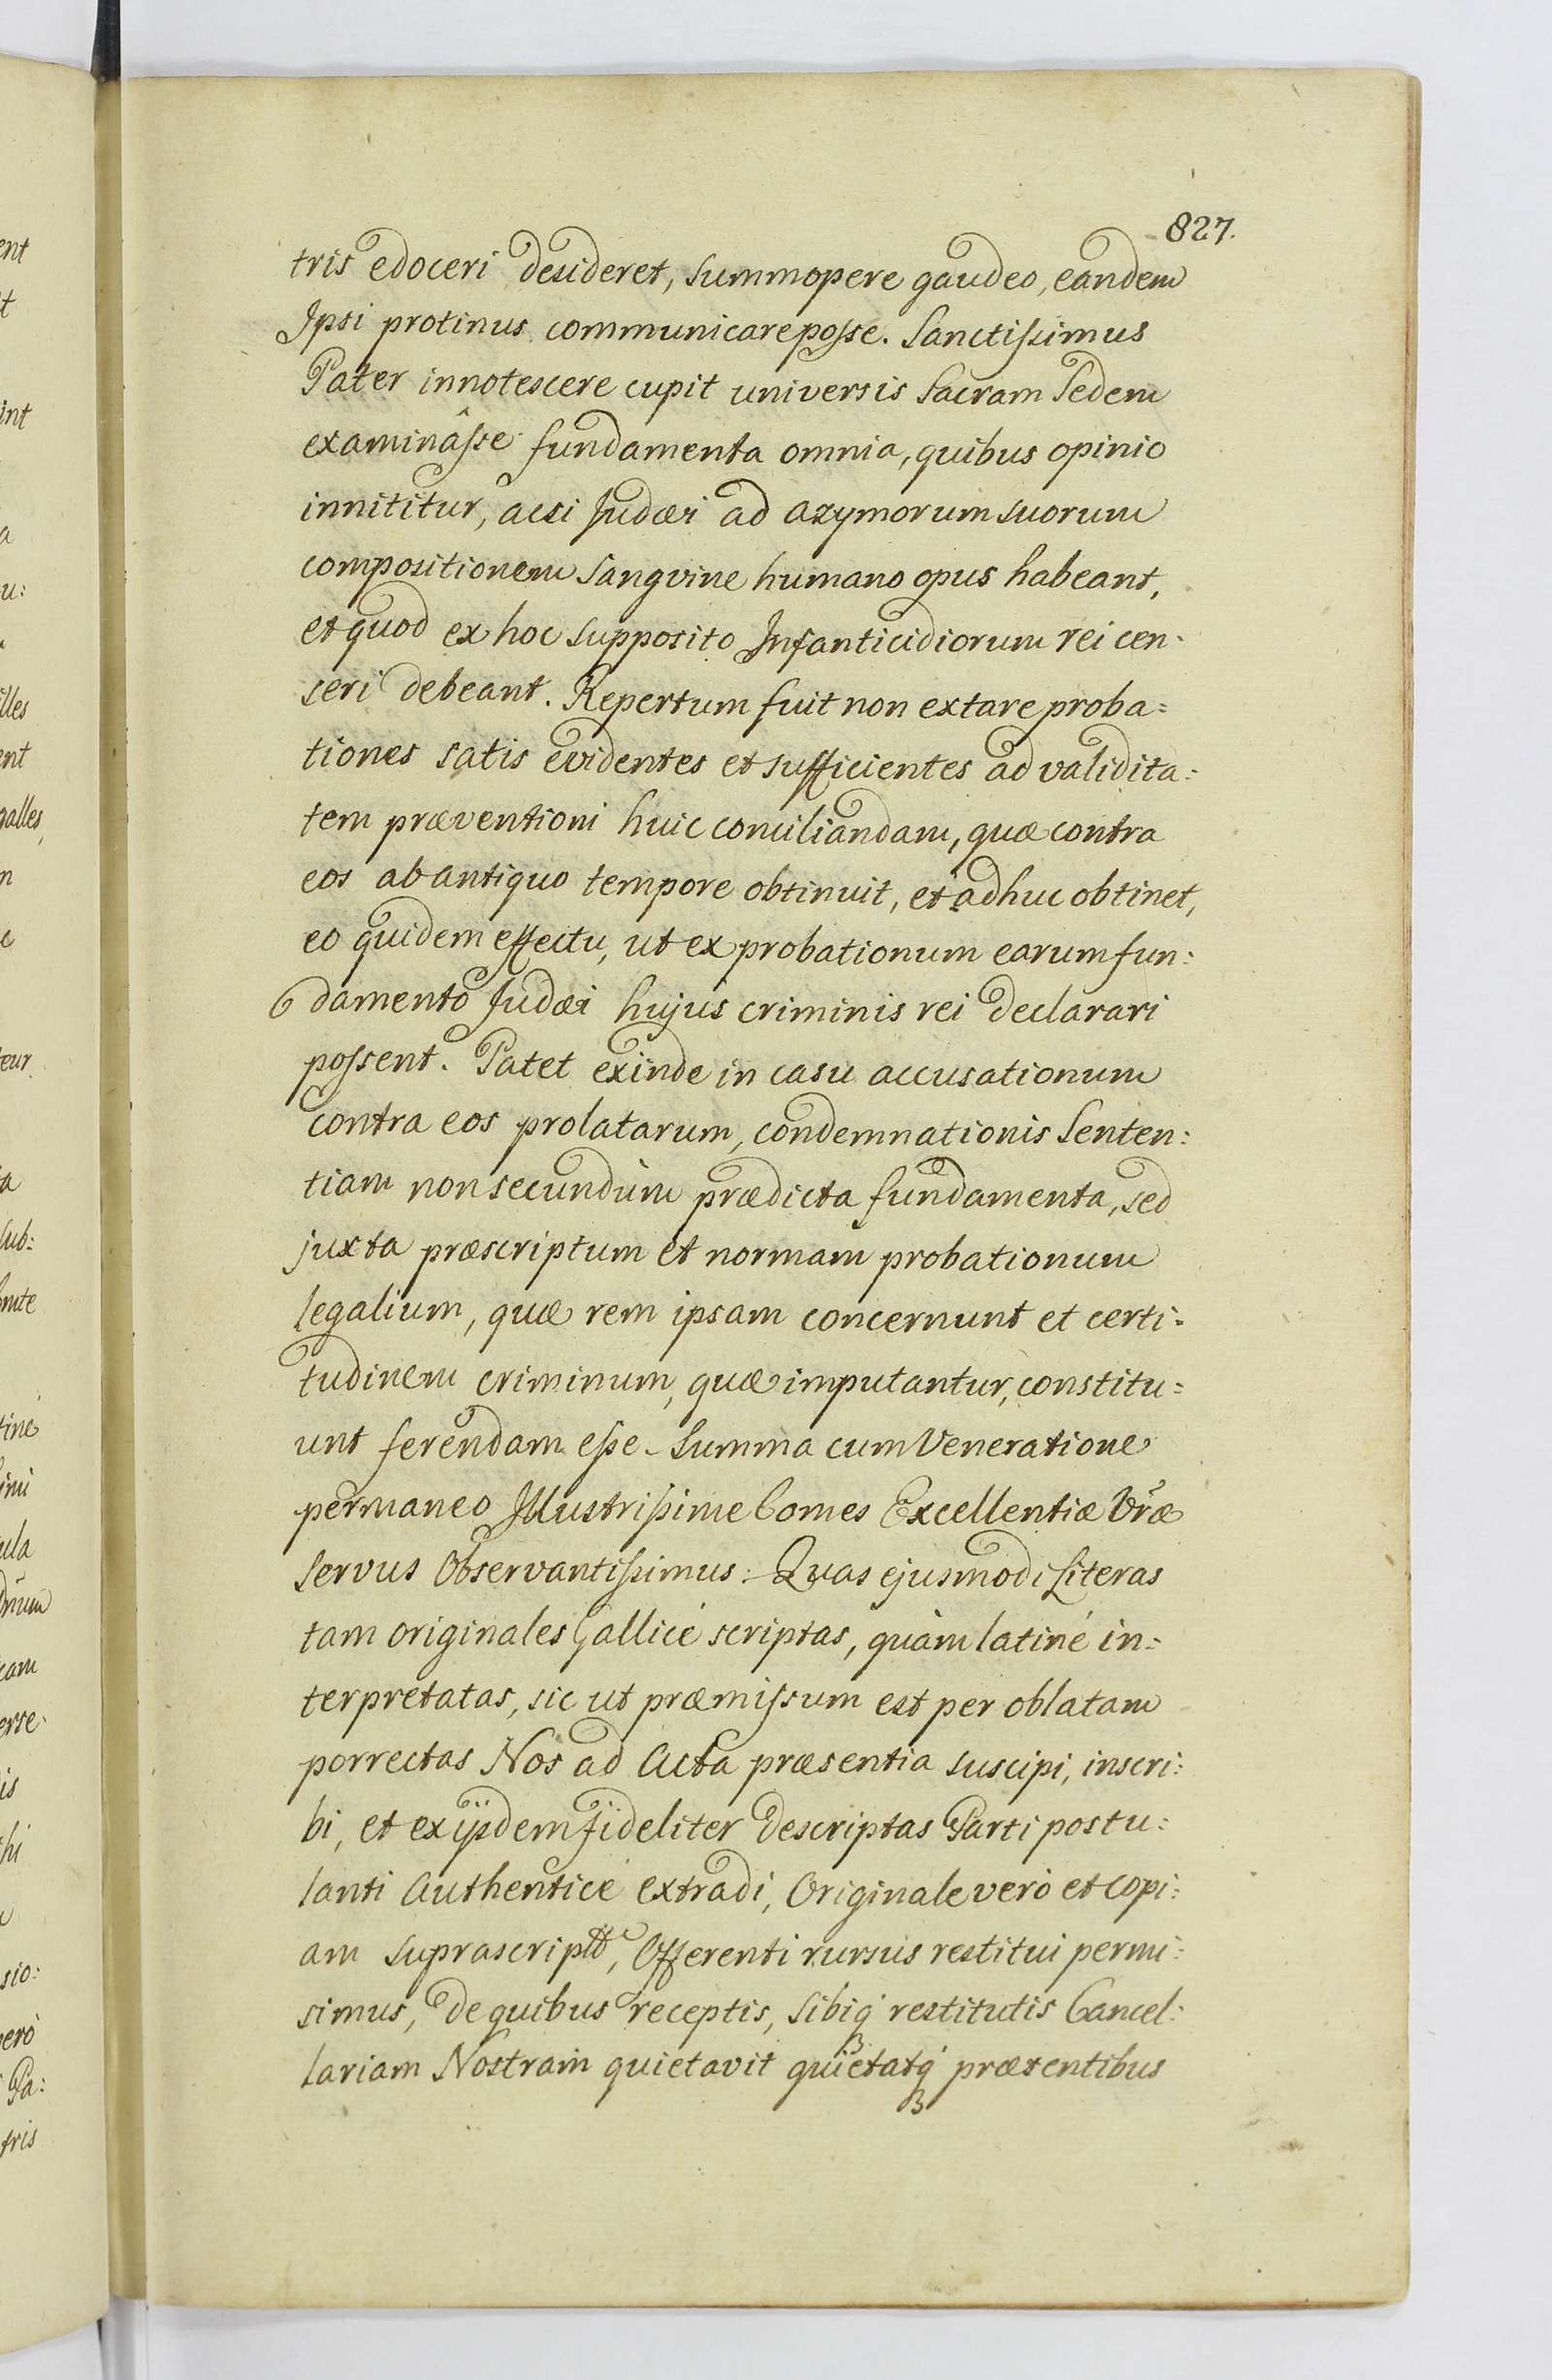 827.
tris edoceri desideret, summopere gaudeo, eandem
Ipsi protinus communicare posse. Sanctissimus
Pater innotescere cupit universis Sacram Sedem
examinâsse fundamenta omnia, quibus opinio
innititur, acsi Judæi ad azymorum suorum
compositionem sangvine humano opus habeant,
et quod ex hoc supposito Infanticidiorum rei cen-
seri debeant. Repertum fuit non extare proba=
tiones satis evidentes et sufficientes ad validita=
tem præventioni huic conciliandam, quæ contra
eos ab antiquo tempore obtinuit, et adhuc obtinet,
eo quidem effectu, ut ex probationum earum fun:
damento Judæi hujus criminis rei declarari
possent. Patet exinde in casu accusationum
contra eos prolatarum, condemnationis Senten:
tiam non secundùm prædicta fundamenta, sed
juxta præscriptum et normam probationum
legalium, quæ rem ipsam concernunt et certi=
tudinem criminum, quæ imputantur, constitu=
unt ferendam esse. Summa cum Veneratione
permaneo Illustrissime Comes Excellentiæ Vræ
Servus Observantissimus: Quas ejusmodi Literas
tam originales Gallicé scriptas, quàm latiné in=
terpretatas, sic ut præmissum est per oblatam
porrectas Nos ad Acta præsentia suscipi, inscri:
bi, et ex ijsdem fideliter descriptas Parti postu:
lanti Authenticé extradi, Originale verò et copi:
am suprascriptã, Offerenti rursus restitui permi:
simus, de quibus receptis, sibiq́ restitutis Cancel:
lariam Nostram quietavit quietatq́ præsentibus
ent
t
int
a
u:
illes
ent
galles,
n
c
teur
ta
sub:
tiné
ula
cam
erse
is
hi
sio:
verò
Pa:
tris